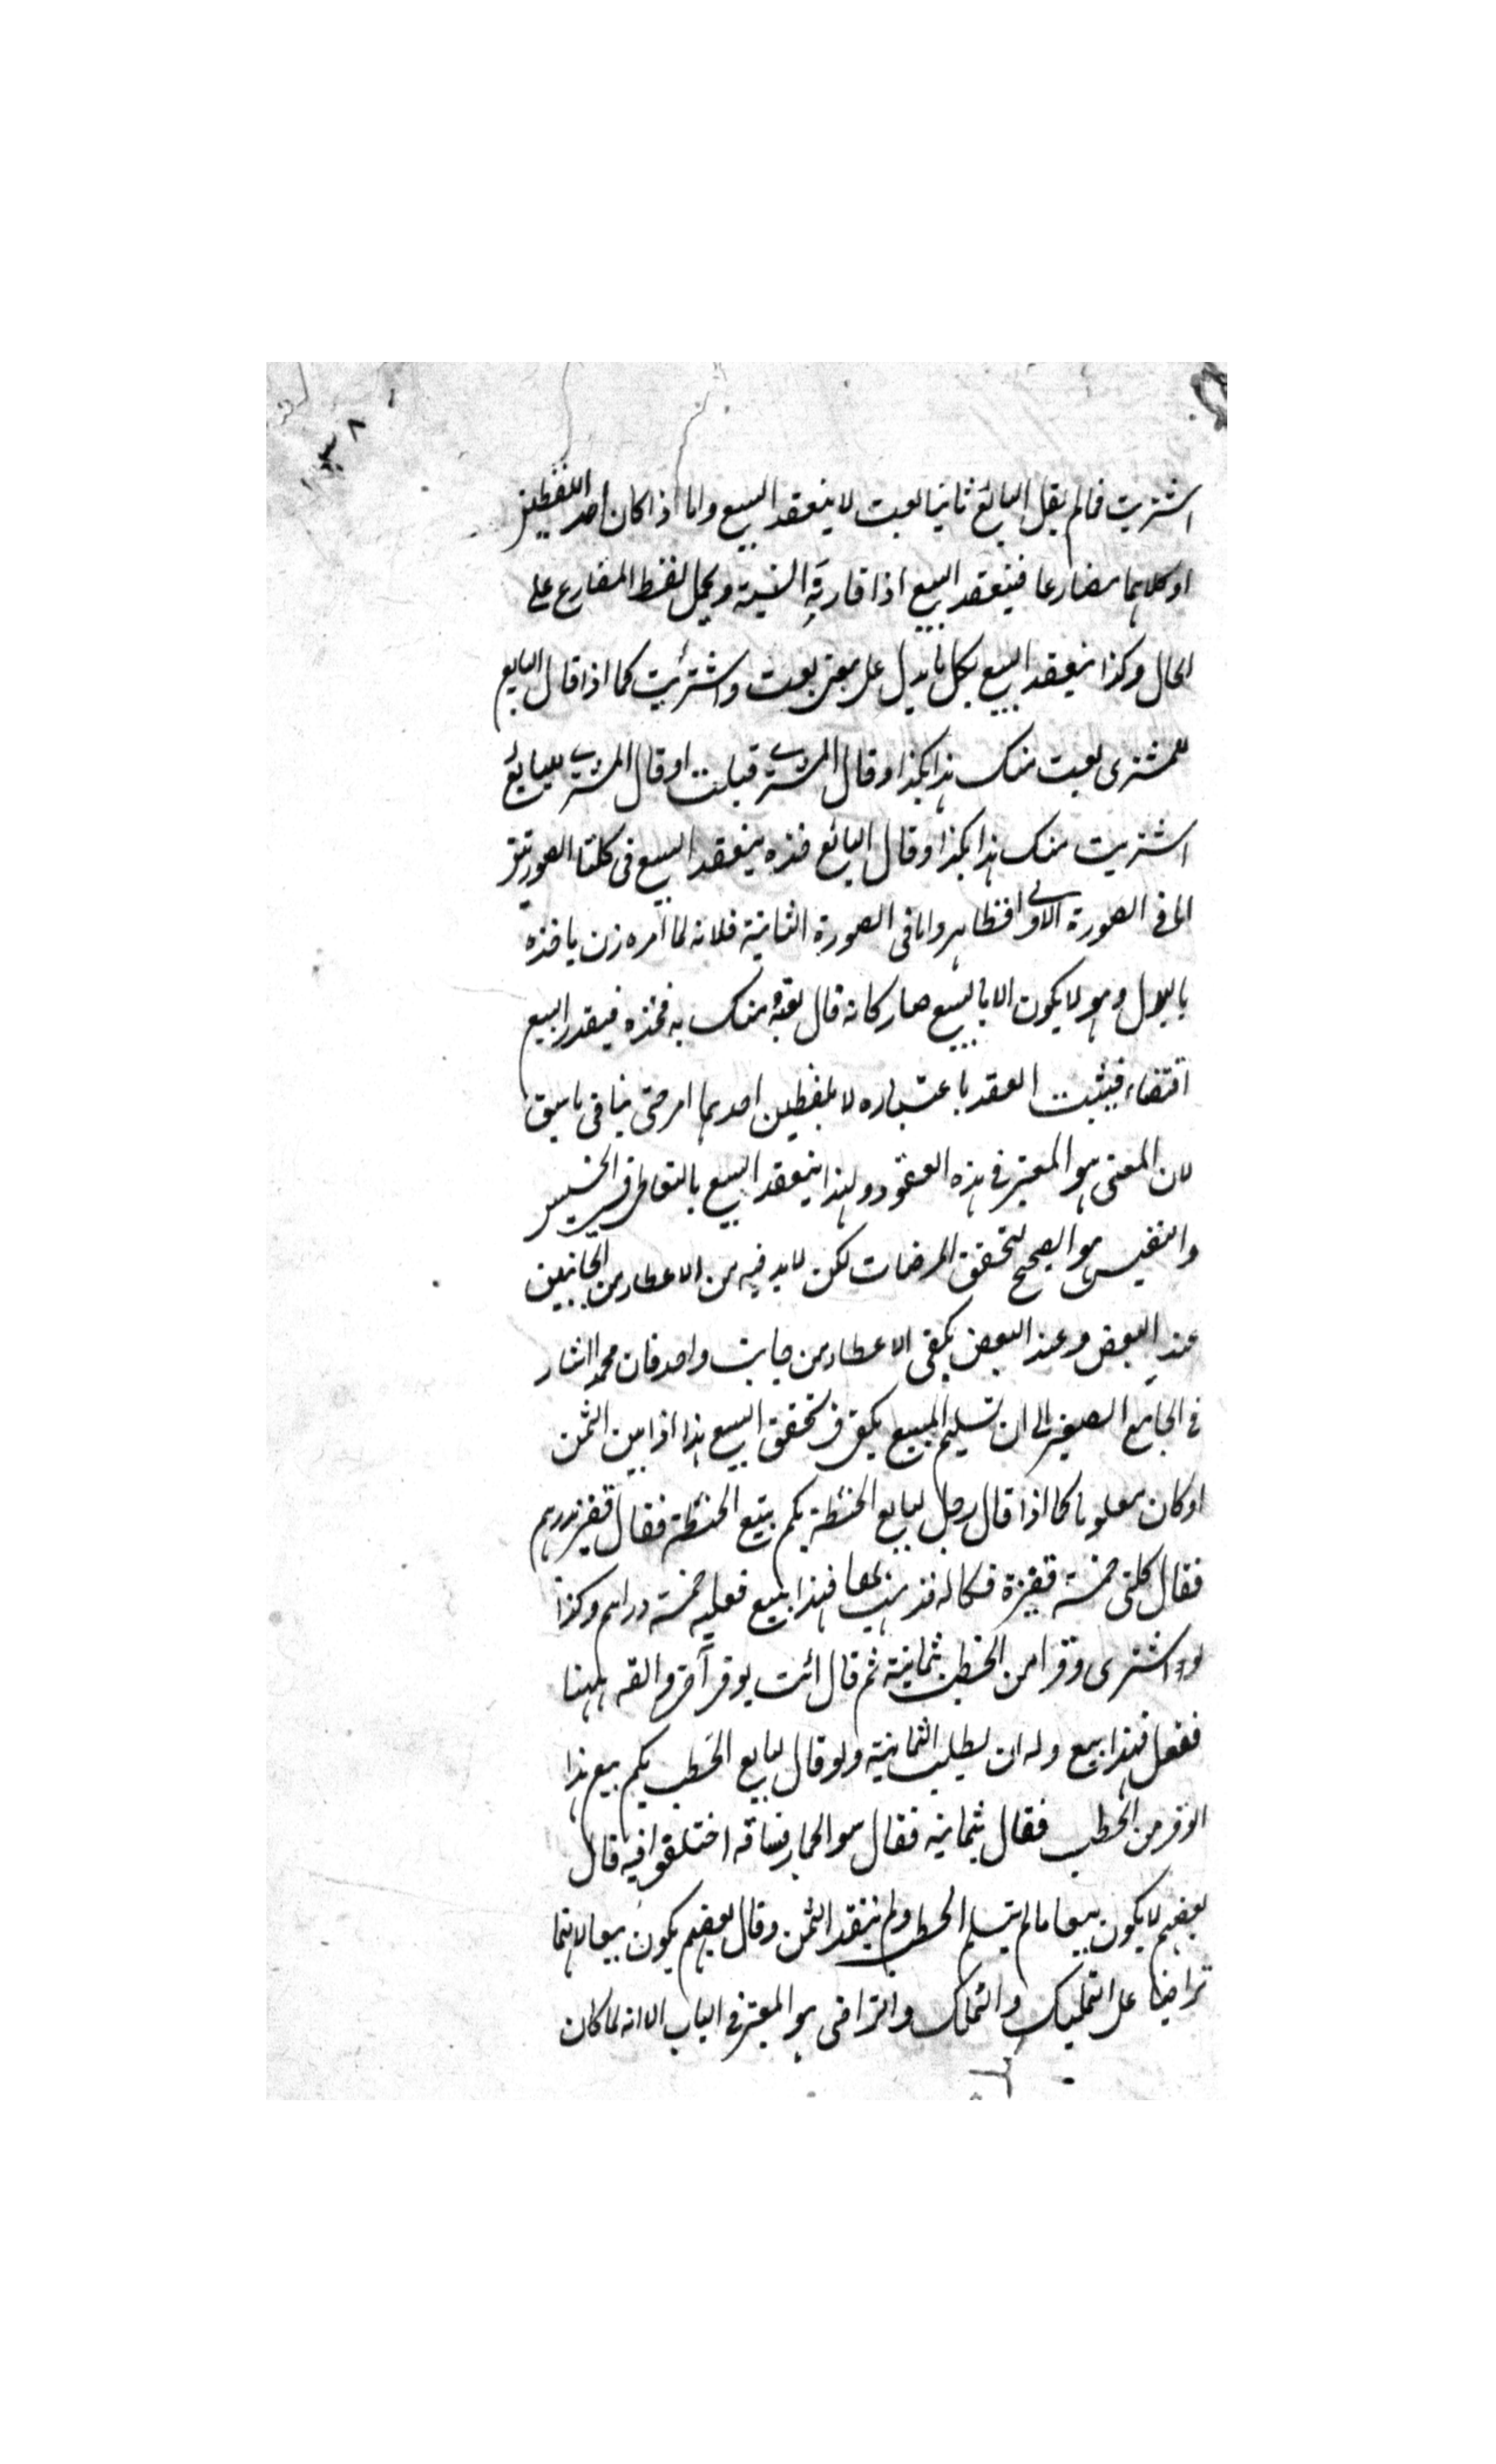 اشتريت فما لم يقل البائع ثانيا بعت لا ينعقد البيع واما اذا كان احد اللفظين
او كلاهما مضارعا فينعقد البيع اذا قارنته النية ويحمل لفظ المضارع على
الحال وكذا ينعقد البيع بكل ما يدل على معنى بعت واشتريت كما اذا قال البايع
للمشترى بعت منك هذا بكذا وقال المشترى قبلت او قال المشترى للبايع
اشتريت منك هذا بكذا وقال البائع خذه ينعقد البيع فى كلتا الصورتين
اما فى الصورة الاولى فظاهر واما فى الصورة الثانية فلانه لما امره يأخذه
بالبدل وهو لا يكون الا بالبيع صار كانه قال بعته منك به فخذه فيقدر البيع
اقتضاء فيثبت العقد باعتباره لا بلفظين احدهما امر حتى ينافى ما سبق
لان المعنى هو المعتبر فى هذه العقود ولهذا ينعقد البيع بالتعاطى فى الخسيس
والنفيس هو الصحيح لتحقق المرضات لكن لابد فيه من الاعطاء من الجانبين
عند البعض وعند البعض يكفى الاعطاء من جانب واحد فان محمدا اشار
فى الجامع الصغير الى ان تسليم المبيع يكفى فى تحقق البيع هذا اذا بين الثمن
او كان معلوما كما اذا قال رجل لبايع الحنطة بكم بتيع الحنطة فقال قفيز بدرهم
فقال كلنى خمسة قفيزة فكاله فذهب بها فهذا بيع فعليه خمسة دراهم وكذا
لو اشترى وقرا من الحطب بثمانية ثم قال ائت بوقر آخر والقه ههنا
ففعل فهذا بيع وله ان يطلب الثمانية ولو قال لبايع الحطب بكم بيع هذا
الوقر من الحطب فقال بثمانية فقال سو الحمار فساقه اختلفوا فيه قال
بعضهم لا يكون بيعا ما لم يتسلم الحطب ولم ينقد الثمن وقال بعضهم يكون بيعا لانهما
تراضيا على التمليك والتملك والتراضى هو المعتبر فى الباب الا انه لما كان